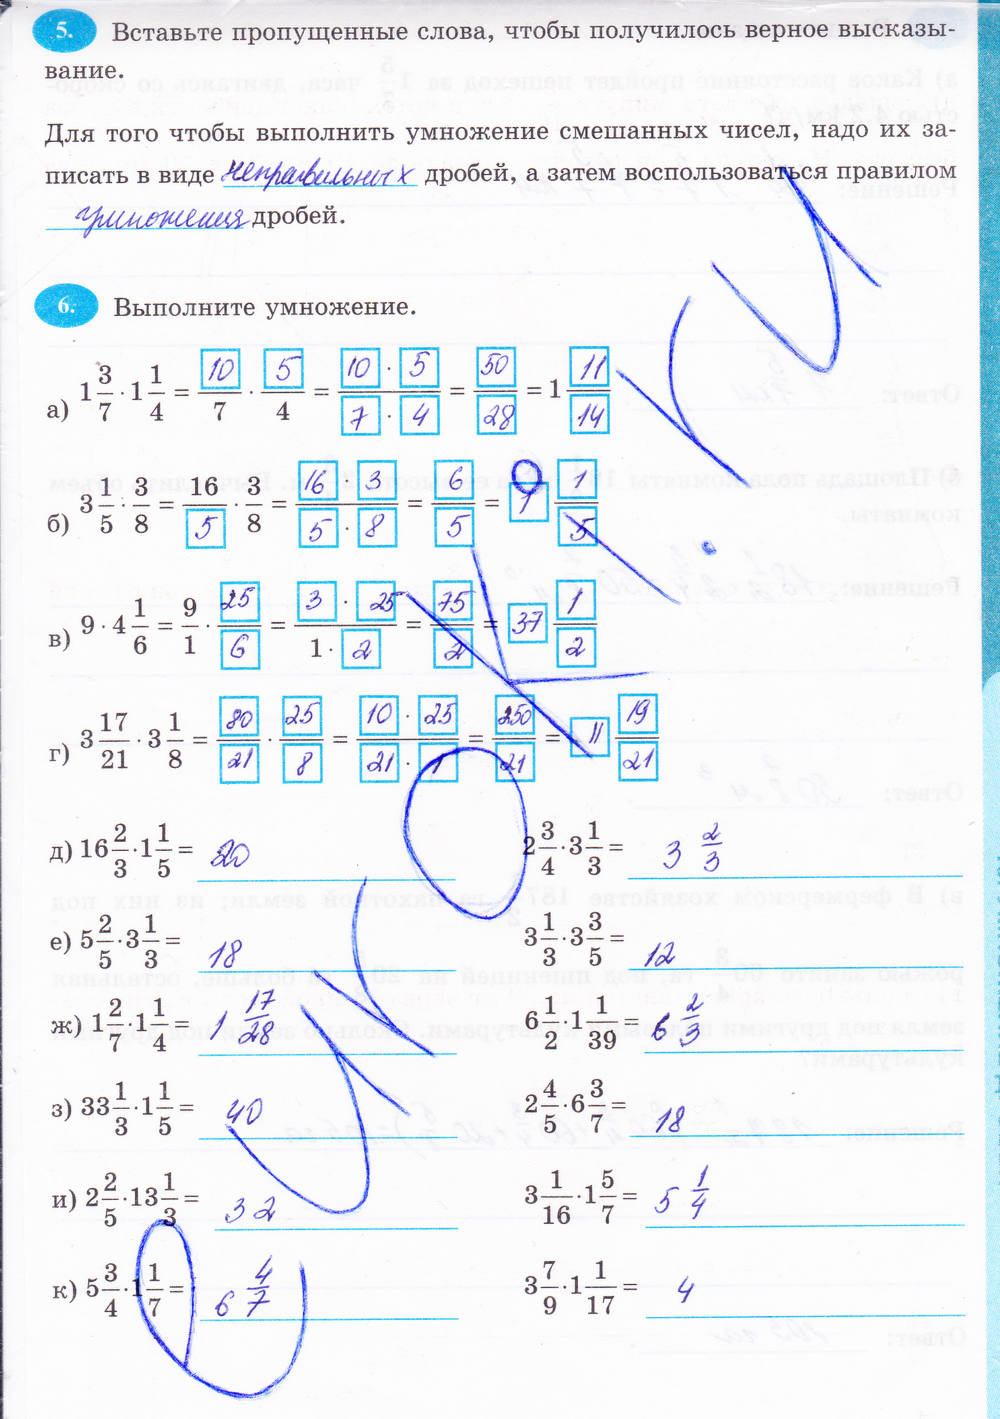 5. Вставьте пропущенные слова, чтобы получилось верное высказы-
вание.
Для того чтобы выполнить умножение смешанных чисел, надо их за-
писать в виде неправильных дробей, а затем воспользоваться правилом
умножения дробей.
6. Выполните умножение.
а) 1 3/7 · 1 1/4 = 10/7 · 5/4 = 10 · 5 / 7 · 4 = 50/28 = 1 11/14
б) 3 1/5 · 3/8 = 16/5 · 3/8 = 16 · 3 / 5 · 8 = 6/5 = 1 1/5
в) 9 · 4 1/6 = 9/1 · 25/6 = 3 · 25 / 1 · 2 = 75/2 = 37 1/2
г) 3 17/21 · 3 1/8 = 80/21 · 25/8 = 10 · 25 / 21 · 1 = 250/21 = 11 19/21
д) 16 2/3 · 1 1/5 = 20 2 3/4 · 3 1/3 = 3 2/3
е) 5 2/5 · 3 1/3 = 18 3 1/3 · 3 3/5 = 12
ж) 1 2/7 · 1 1/4 = 1 17/28 6 1/2 · 1 1/39 = 6 2/3
з) 33 1/3 · 1 1/5 = 40 2 4/5 · 6 3/7 = 18
и) 2 2/5 · 13 1/3 = 32 3 1/16 · 1 5/7 = 5 1/4
к) 5 3/4 · 1 1/7 = 6 4/7 3 7/9 · 1 1/17 = 4